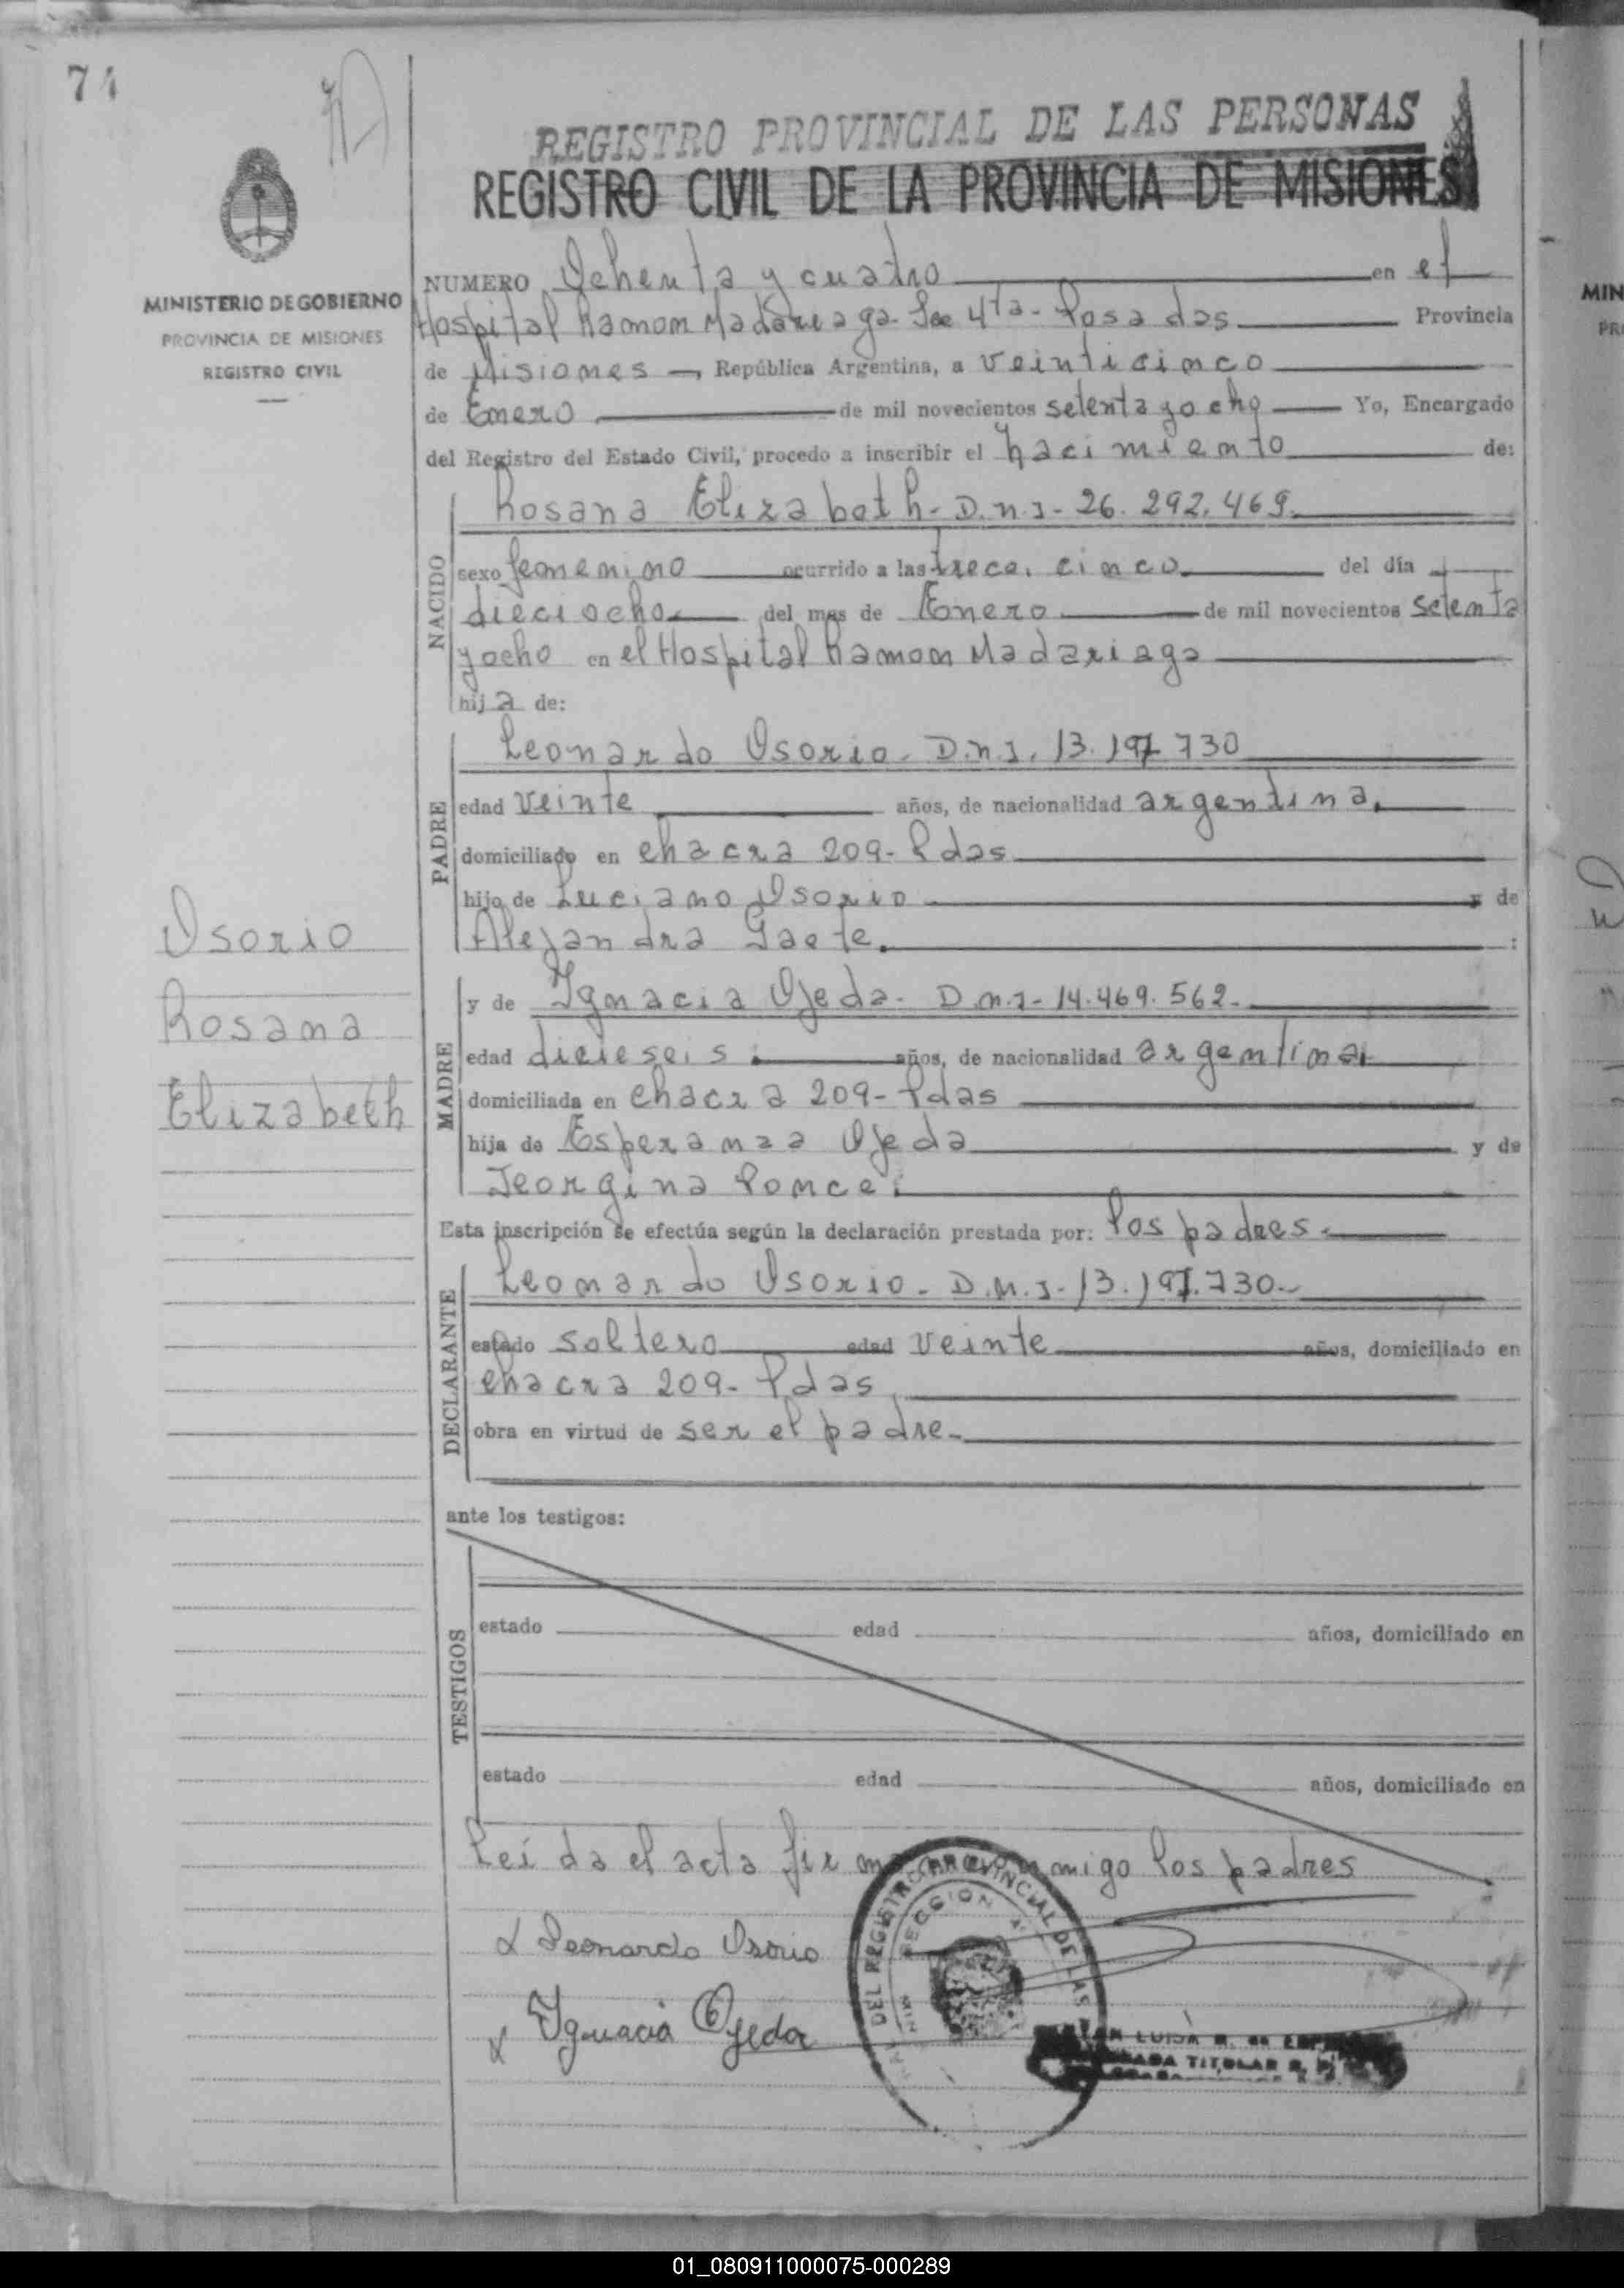 74
REGISTRO PROVINCIAL DE LAS PERSONAS
REGISTRO CIVIL DE LA PROVINCIA DE MISIONES
MINISTERIO DE GOBIERNO
PROVINCIA DE MISIONES
REGISTRO CIVIL
NUMERO Ochenta y cuatro en el
Hospital Ramon Madariaga - Sec 4ta - Posadas Provincia
de Misiones, República Argentina, a veinticinco
de Enero de mil novecientos setenta y ocho Yo, Encargado
del Registro del Estado Civil, procedo a inscribir el nacimiento de:
NACIDO
Rosana Elizabeth - D.n.i - 26.292.469.
sexo femenino ocurrido a las trece. cinco del día
dieciocho del mes de Enero de mil novecientos setenta
y ocho en el Hospital Ramon Madariaga
hija de:
PADRE
Leonardo Osorio - D.n.i. 13.197.730
edad veinte años, de nacionalidad argentina.
domiciliado en chacra 209 - Pdas
hijo de Luciano Osorio y de
Alejandra Gaete. :
Osorio
Rosana
Elizabeth
MADRE
y de Ignacia Ojeda - D.n.i - 14.469.562-
edad dicieseis. años, de nacionalidad argentina,
domiciliada en chacra 209 - Pdas
hija de Esperanza Ojeda y de
Jeorgina Ponce.
Esta inscripción se efectúa según la declaración prestada por: los padres.
DECLARANTE
Leonardo Osorio - D.N.i - 13.197.730-
estado soltero edad veinte años, domiciliado en
chacra 209 - Pdas
obra en virtud de ser el padre-
ante los testigos:
TESTIGOS
estado edad años, domiciliado en
estado edad años, domiciliado en
Leida el acta firman conmigo los padres
x Leonardo Osorio
x Ignacia Ojeda
DEL REGISTRO PROVINCIAL DE LAS
SECCION
LUISA
TITULAR
MIN
01_080911000075-000289